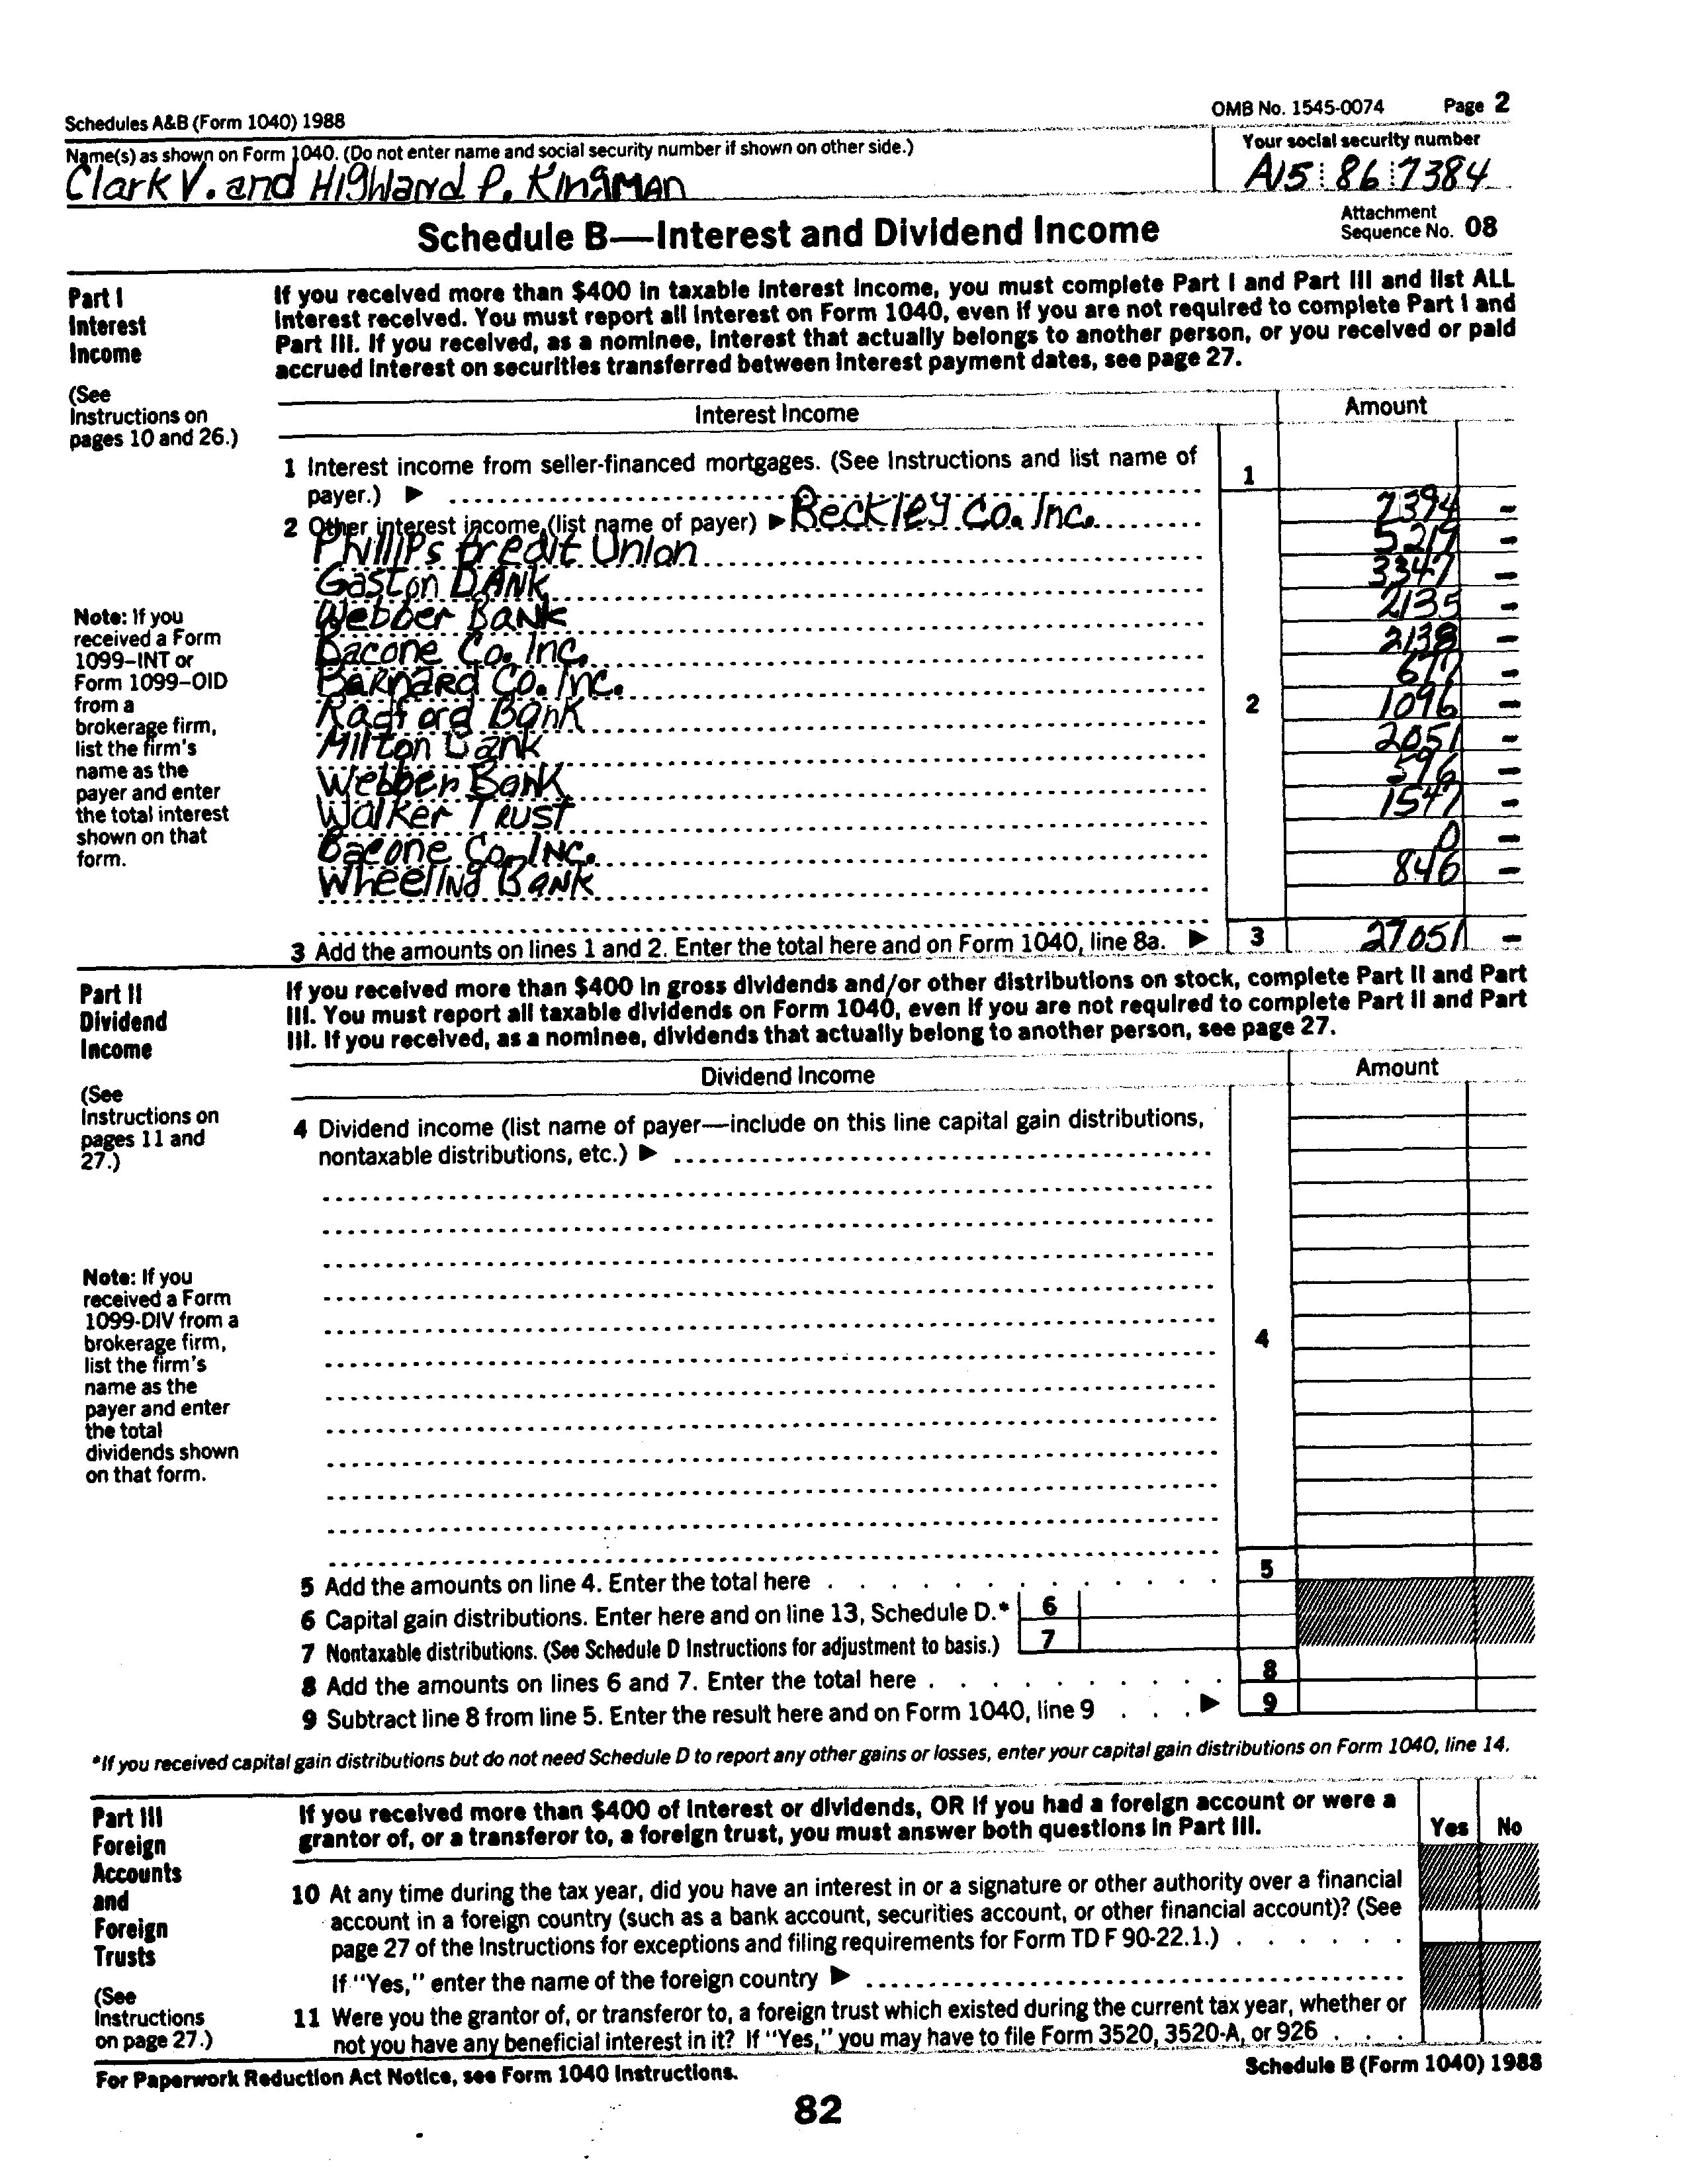 Schedules A&B (Form 1040) 1988
OMB No. 1545-0074 Page 2
Name(s) as shown on Form 1040. (Do not enter name and social security number if shown on other side.)
Your social security number
Clark V. and Highland P. Kingman
A15 86 7384
Schedule B—Interest and Dividend Income
Attachment
Sequence No. 08
Part I
Interest
Income
(See
Instructions on
pages 10 and 26.)
If you received more than $400 in taxable interest income, you must complete Part I and Part III and list ALL
interest received. You must report all interest on Form 1040, even if you are not required to complete Part I and
Part III. If you received, as a nominee, interest that actually belongs to another person, or you received or paid
accrued interest on securities transferred between interest payment dates, see page 27.
Interest Income Amount
1 Interest income from seller-financed mortgages. (See Instructions and list name of
payer.) ▶ 1
2 Other interest income (list name of payer) ▶ Beckley Co. Inc. 7394 –
Phillips Credit Union 5217 –
Gaston Bank 3347 –
Webber Bank 2135 –
Bacone Co. Inc. 2138 –
Barnard Co. Inc. 677 –
Radford Bank 2 1096 –
Milton Bank 2051 –
Webber Bank 596 –
Walker Trust 1547 –
Bacone Co. Inc. 0 –
Wheeling Bank 846 –
Note: If you
received a Form
1099–INT or
Form 1099–OID
from a
brokerage firm,
list the firm's
name as the
payer and enter
the total interest
shown on that
form.
3 Add the amounts on lines 1 and 2. Enter the total here and on Form 1040, line 8a. ▶ 3 27051 –
Part II
Dividend
Income
(See
Instructions on
pages 11 and
27.)
If you received more than $400 in gross dividends and/or other distributions on stock, complete Part II and Part
III. You must report all taxable dividends on Form 1040, even if you are not required to complete Part II and Part
III. If you received, as a nominee, dividends that actually belong to another person, see page 27.
Dividend Income Amount
4 Dividend income (list name of payer—include on this line capital gain distributions,
nontaxable distributions, etc.) ▶
4
Note: If you
received a Form
1099-DIV from a
brokerage firm,
list the firm's
name as the
payer and enter
the total
dividends shown
on that form.
5 Add the amounts on line 4. Enter the total here 5
6 Capital gain distributions. Enter here and on line 13, Schedule D.* 6
7 Nontaxable distributions. (See Schedule D Instructions for adjustment to basis.) 7
8 Add the amounts on lines 6 and 7. Enter the total here 8
9 Subtract line 8 from line 5. Enter the result here and on Form 1040, line 9 ▶ 9
*If you received capital gain distributions but do not need Schedule D to report any other gains or losses, enter your capital gain distributions on Form 1040, line 14.
Part III
Foreign
Accounts
and
Foreign
Trusts
(See
Instructions
on page 27.)
If you received more than $400 of interest or dividends, OR if you had a foreign account or were a
grantor of, or a transferor to, a foreign trust, you must answer both questions in Part III.
Yes No
10 At any time during the tax year, did you have an interest in or a signature or other authority over a financial
account in a foreign country (such as a bank account, securities account, or other financial account)? (See
page 27 of the Instructions for exceptions and filing requirements for Form TD F 90-22.1.)
If "Yes," enter the name of the foreign country ▶
11 Were you the grantor of, or transferor to, a foreign trust which existed during the current tax year, whether or
not you have any beneficial interest in it? If "Yes," you may have to file Form 3520, 3520-A, or 926
For Paperwork Reduction Act Notice, see Form 1040 Instructions.
Schedule B (Form 1040) 1988
82